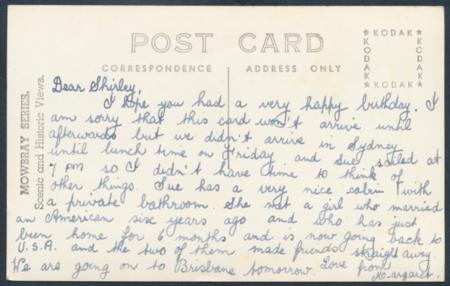 POST CARD
CORRESPONDENCE
ADDRESS ONLY
KODAK
KODAK
KODAK
KODAK
MOWBRAY SERIES.
Scenic and Historic Views.
Dear Shirley,
I hope you had a very happy birthday. I
am sorry that this card won't arrive until
afterwards but we didn't arrive in Sydney
until lunch time on Friday and Sue sailed at
7 pm so I didn't have time to think of
other things. Sue has a very nice cabin with
a private bathroom. She met a girl who married
an American six years ago and who has just
been home for 6 months and is now going back to
U.S.A. and the two of them made friends straight away.
We are going on to Brisbane tomorrow. Love from
Margaret.